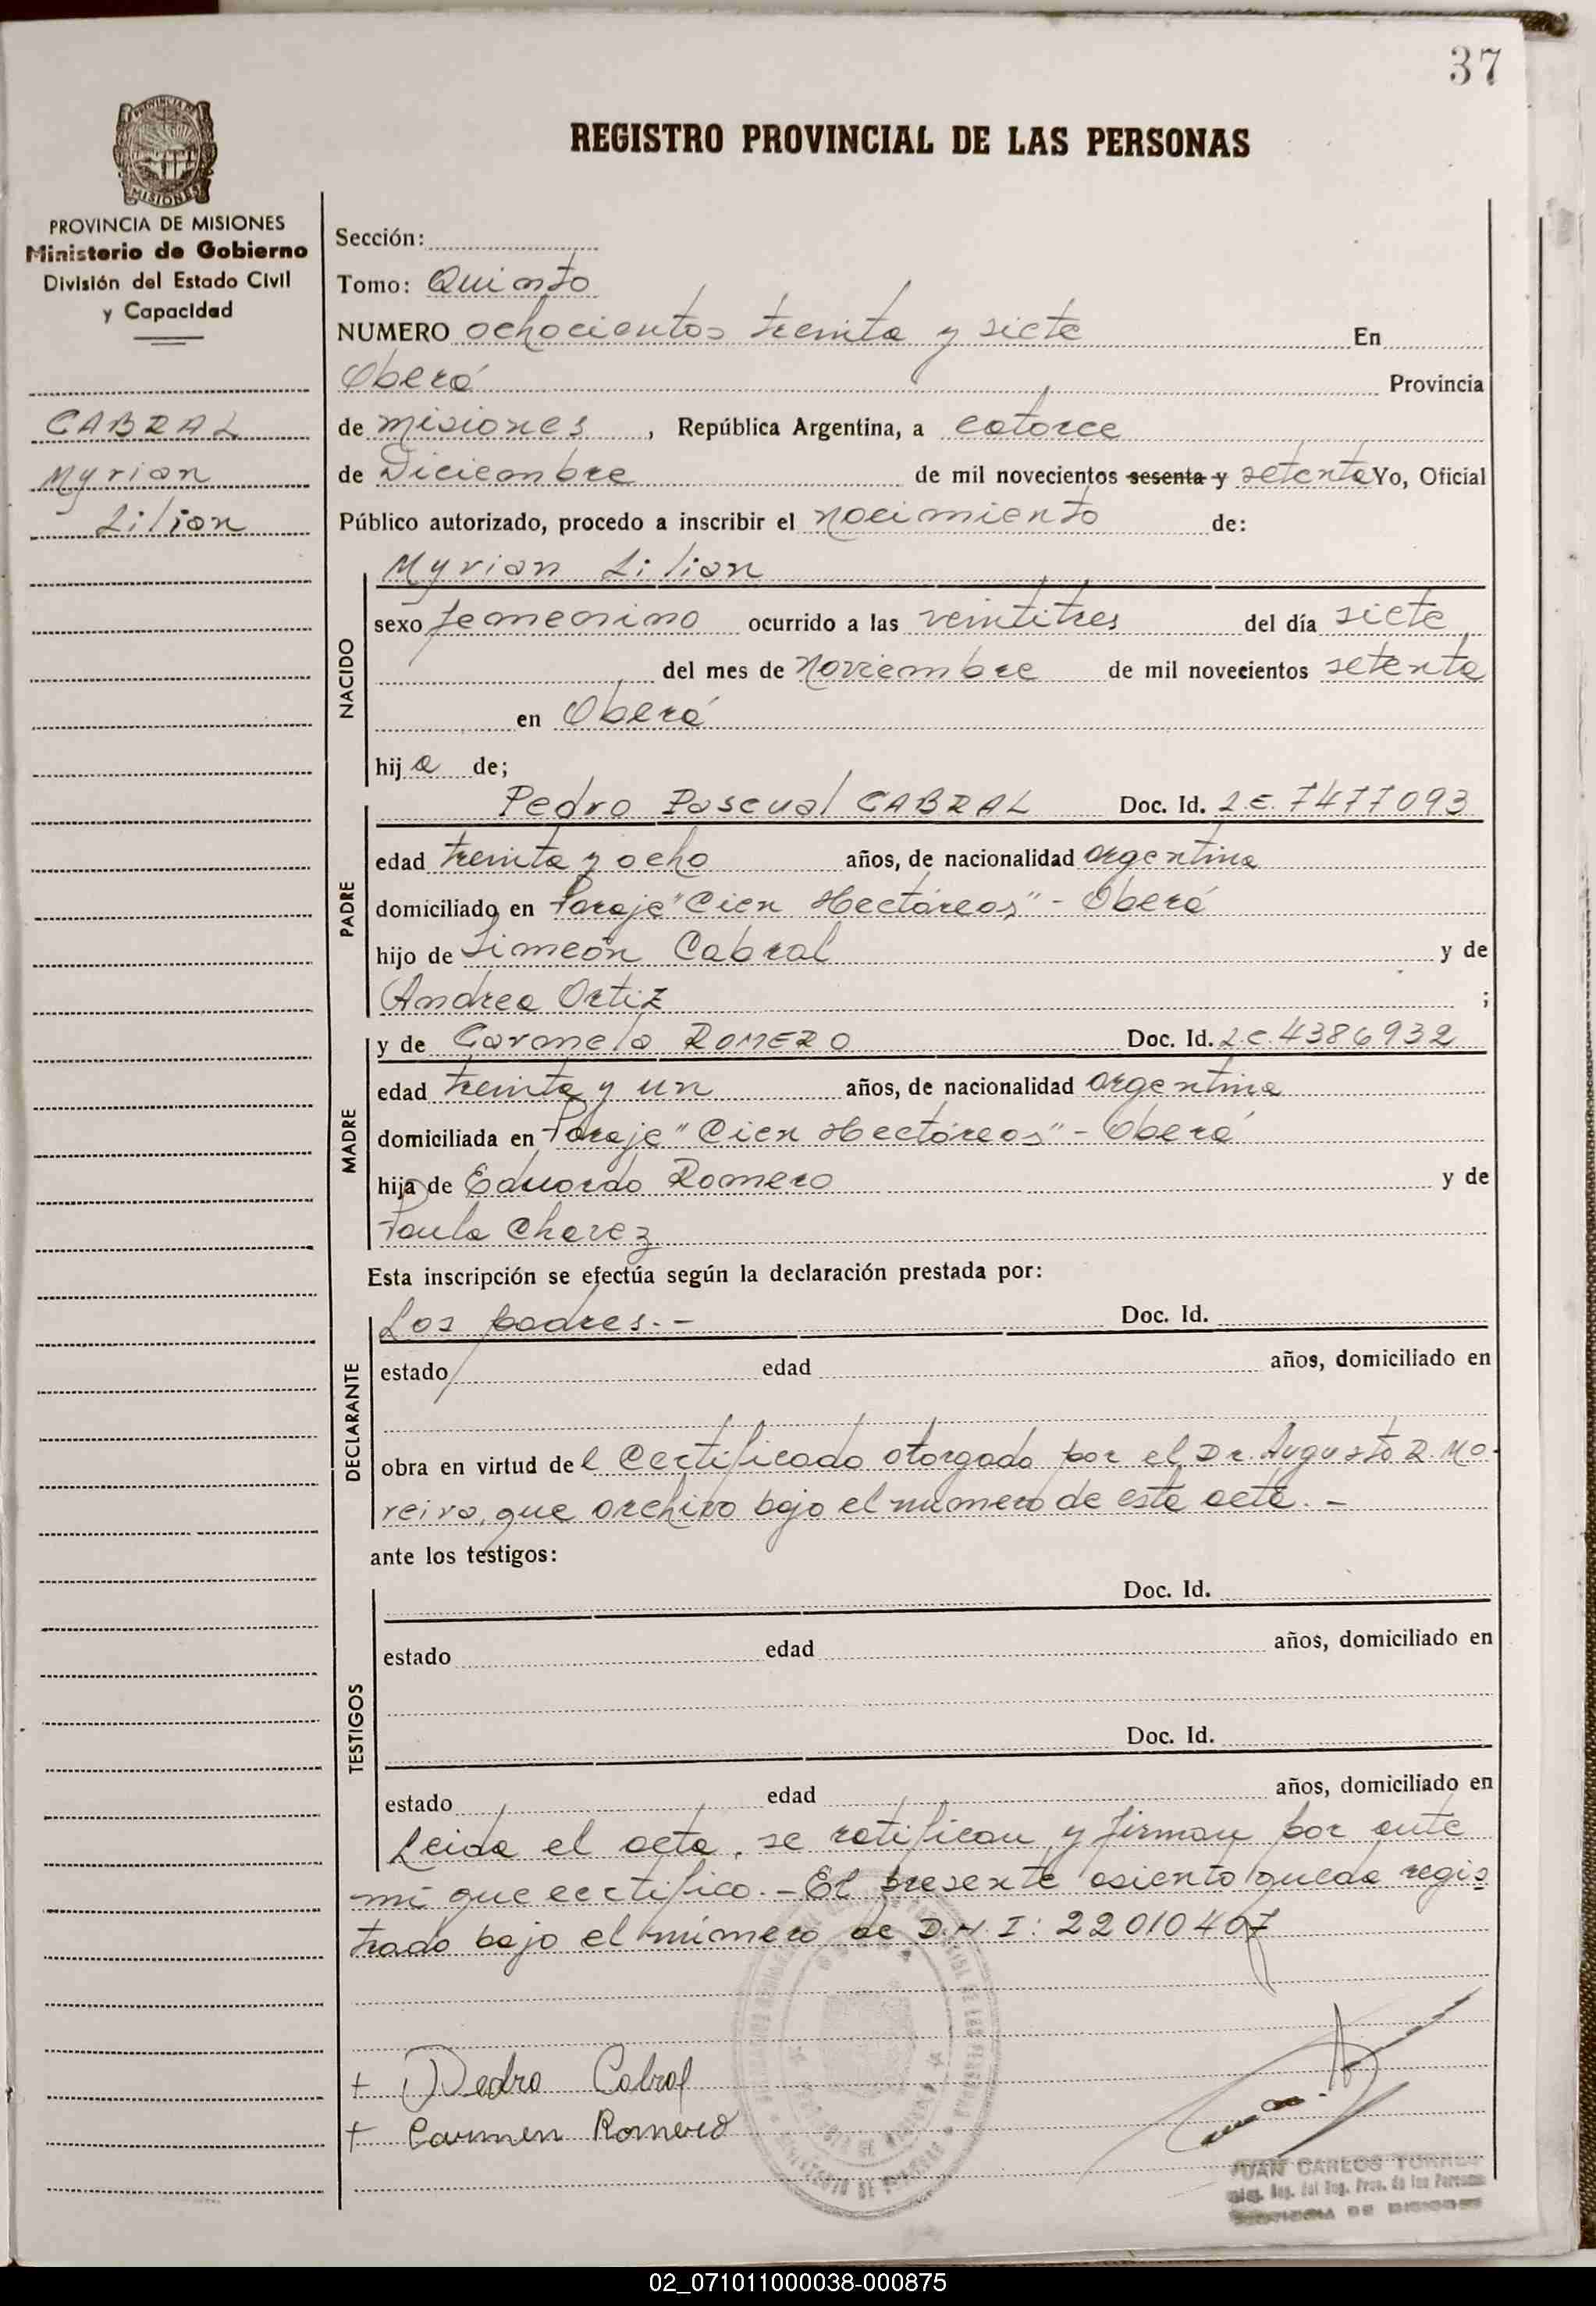 37
PROVINCIA DE MISIONES
Ministerio de Gobierno
División del Estado Civil
y Capacidad
CABRAL
Myrian
Lilian
REGISTRO PROVINCIAL DE LAS PERSONAS
Sección:
Tomo: Quinto
NUMERO ochocientos treinta y siete En
Oberá Provincia
de Misiones, República Argentina, a catorce
de Diciembre de mil novecientos sesenta y setenta Yo, Oficial
Público autorizado, procedo a inscribir el nacimiento de:
Myrian Lilian
NACIDO
sexo femenino ocurrido a las veintitres del día siete
del mes de Noviembre de mil novecientos setenta
en Oberá
hija de;
PADRE
Pedro Pascual CABRAL Doc. Id. L.E. 7477093
edad treinta y ocho años, de nacionalidad argentina
domiciliado en Paraje "Cien Hectáreas" - Oberá
hijo de Simeón Cabral y de
Andrea Ortiz ;
MADRE
y de Carmela ROMERO Doc. Id. L.C. 4386932
edad treinta y un años, de nacionalidad argentina
domiciliada en Paraje "Cien Hectáreas" - Oberá
hija de Eduardo Romero y de
Paula Chavez
Esta inscripción se efectúa según la declaración prestada por:
DECLARANTE
Los padres.- Doc. Id.
estado edad años, domiciliado en
obra en virtud del Certificado otorgado por el Dr. Augusto R. Mo-
reira, que archivo bajo el número de esta acta.-
ante los testigos:
TESTIGOS
Doc. Id.
estado edad años, domiciliado en
Doc. Id.
estado edad años, domiciliado en
Leida el acta, se ratifican y firman por ante
mi que certifico.- El presente asiento queda regis
trado bajo el número de D.N.I: 22010407
+ Pedro Cabral
+ Carmen Romero
JUAN CARLOS
PROVINCIA DE MISIONES
02_071011000038-000875